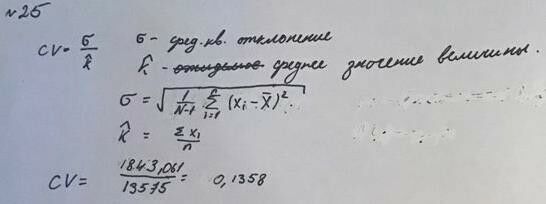 №25
CV = σ/k̂   σ - сред. кв. отклонение
k̂ - среднее значение величины.
σ = √(1/(N-1) Σ_{i=1}^{n} (x_i - x̄)²)
k̂ = Σx_i/n
CV = 1843,061/13575 = 0,1358